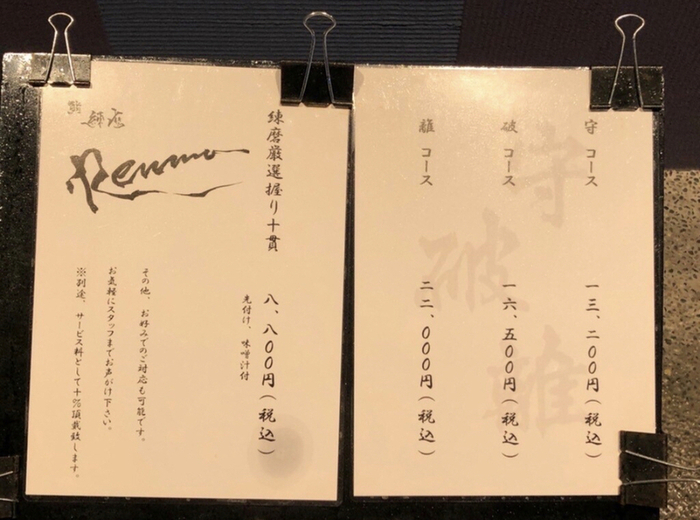 守 コース 一三、二00円(税込)
破 コース 一六、五00円(税込)
離 コース 二二、000円(税込)
守
破
離
練磨厳選握り十貫 八、八00円(税込)
先付け、味噌汁付
Renma
その他、お好みでのご対応も可能です。
お気軽にスタッフまでお声がけ下さい。
※別途、サービス料として十%頂戴致します。